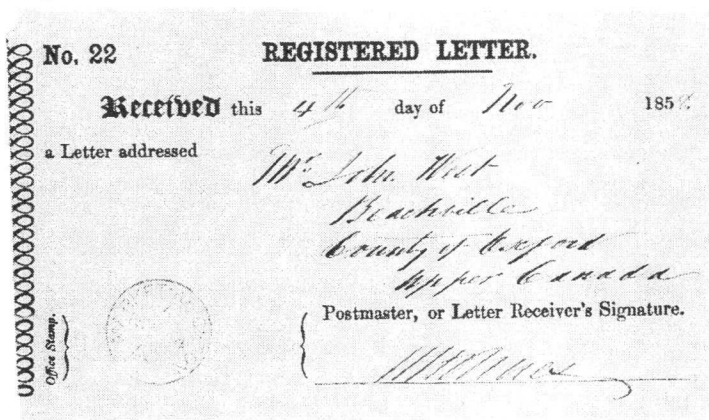 No. 22 REGISTERED LETTER.
Received this 4th day of Nov 1858
a Letter addressed
Mr John West
Beachville
County of Oxford
Upper Canada
Postmaster, or Letter Receiver's Signature.
Office Stamp.